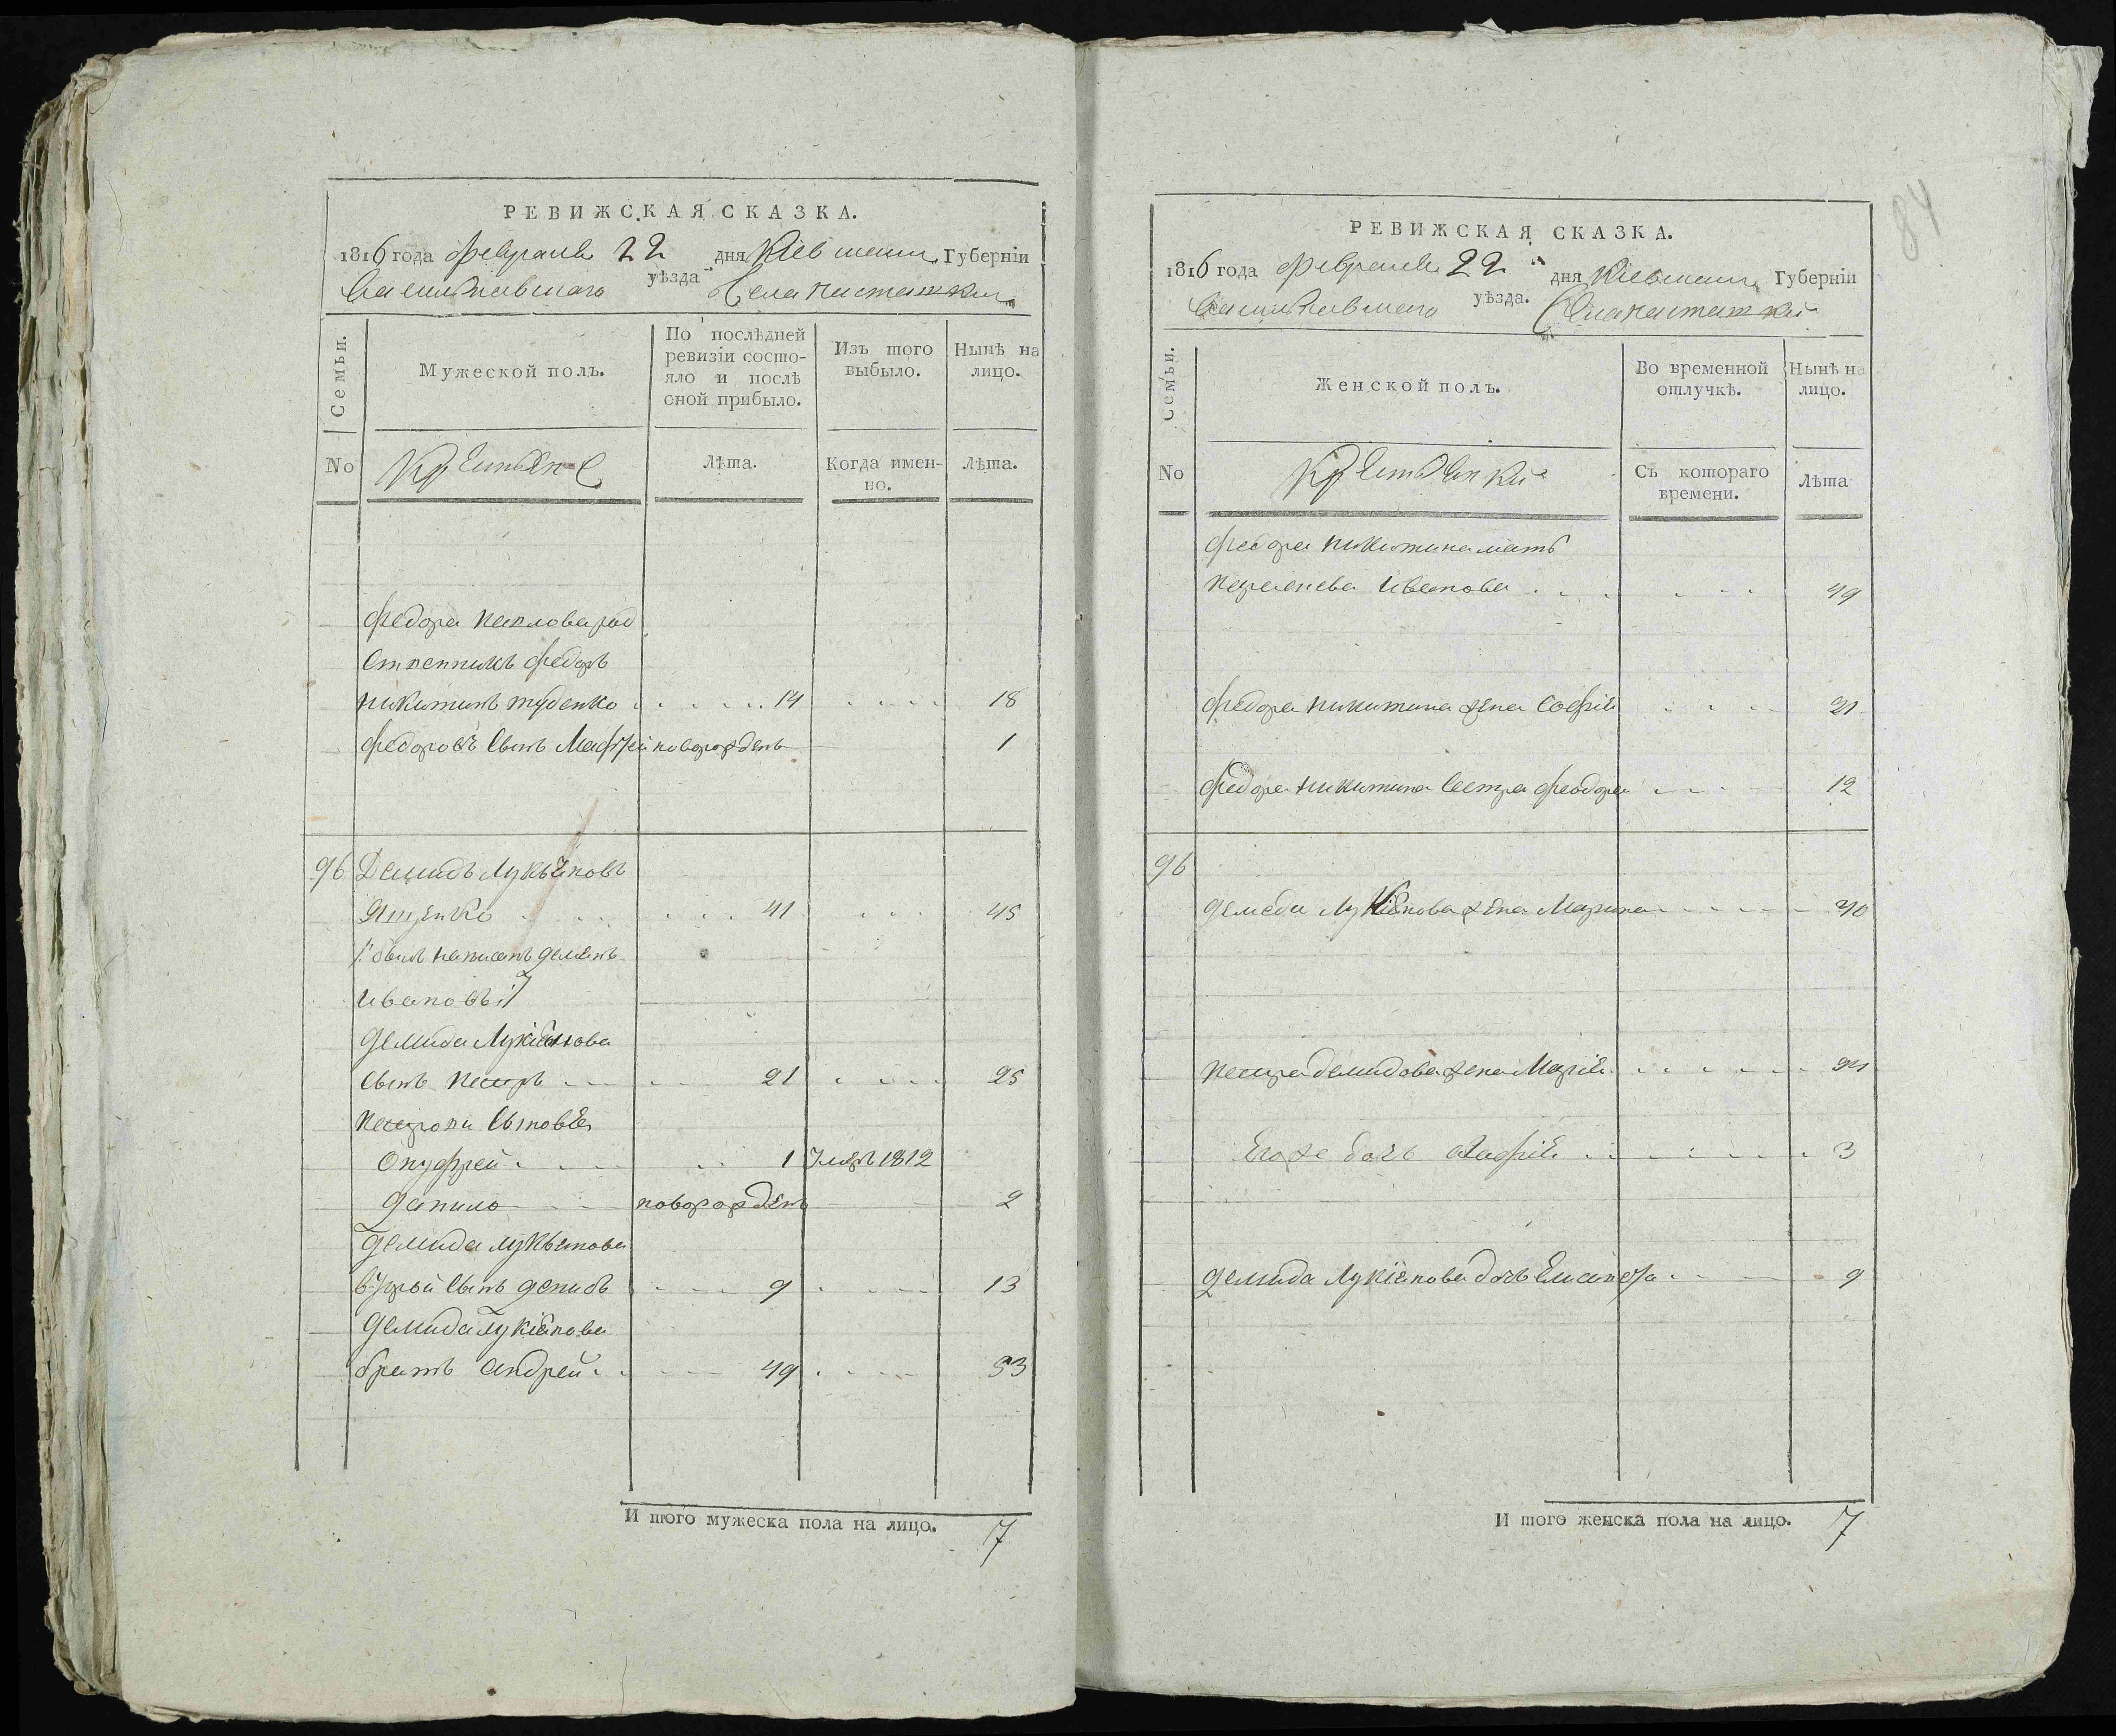 РЕВИЖСКАЯ СКАЗКА.
1816 года февраля 22 дня Кіевской Губерніи
Васильковского уѣзда Села
Семьи.
Мужеской полъ.
По послѣдней ревизіи состояло и послѣ оной прибыло.
Изъ того выбыло.
Нынѣ на лицо.
No
Крестьяне
Лѣта.
Когда именно.
Лѣта.
Федора Павлова род
ственникъ Федоръ
Никитинъ . . . . . 14 . . . . 18
Федоровъ сынъ Мафтей новорожденъ 1
96 Демидъ Лукьяновъ
Ященко . . . . . 41 . . . 45
былъ написанъ Демянъ
Ивановъ
Демида Лукіянова
сынъ Петръ . . . 21 . . . . 25
Петровы сыновья
Онуфрей . . . . . 1 Умеръ 1812
Данило новорожденъ 2
Демида Лукьянова
вторый сынъ Денисъ . . . 9 . . . . 13
Демида Лукіянова
братъ Андрей . . . . 49 . . . . 53
И того мужеска пола на лицо. 7
84
РЕВИЖСКАЯ СКАЗКА.
1816 года февраля 22 дня Кіевской Губерніи
Васильковского уѣзда. Села
Семьи.
Женской полъ.
Во временной отлучкѣ.
Нынѣ на лицо.
No
Крестьянки
Съ котораго времени.
Лѣта
Федора Никитина мать
Иванова . . . . . . 49
Федора Никитина жена Софія . . . . 21
Федора Никитина сестра Феодора . . . . 12
96
Демида Лукіянова жена Марина . . . . . 40
Петра Демидова жена Марія . . . . . . 24
Его же дочь Агафія . . . . . . 3
Демида Лукіянова дочь . . . 9
И того женска пола на лицо. 7